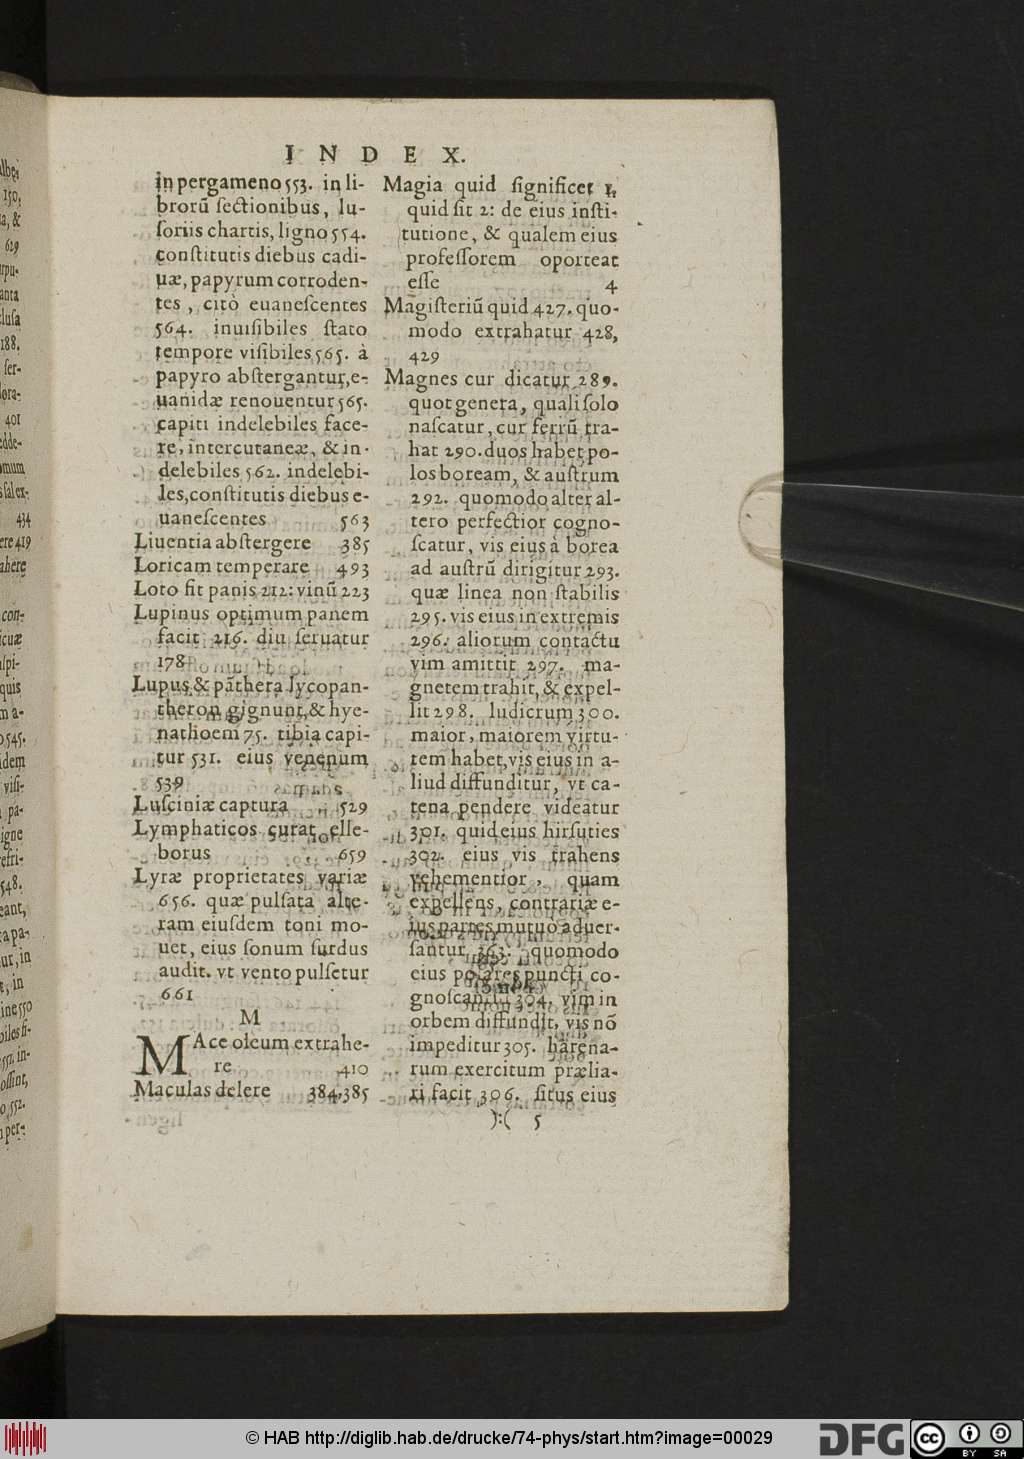 INDEX.
in pergameno 553. in li-
brorũ ſectionibus, lu-
ſoriis chartis, ligno 554.
conſtitutis diebus cadi-
uæ, papyrum corroden-
tes, citò euaneſcentes
564. inuiſibiles ſtato
tempore viſibiles 565. à
papyro abſtergantur, e-
uanidæ renouentur 565.
capiti indelebiles face-
re, intercutaneæ, & in-
delebiles 562. indelebi-
les, conſtitutis diebus e-
uaneſcentes 563
Liuentia abſtergere 385
Loricam temperare 493
Loto fit panis 212: vinũ 223
Lupinus optimum panem
facit 216. diu ſeruatur
178
Lupus & pãthera lycopan-
theron gignunt, & hye-
na thoem 75. tibia capi-
tur 531. eius venenum
539
Luſciniæ captura 529
Lymphaticos curat elle-
borus 659
Lyræ proprietates variæ
656. quæ pulſata alte-
ram eiuſdem toni mo-
uet, eius ſonum ſurdus
audit. vt vento pulſetur
661
M
MAce oleum extrahe-
re 410
Maculas delere 384,385
Magia quid ſignificet 1,
quid ſit 2: de eius inſti-
tutione, & qualem eius
profeſſorem oporteat
eſſe 4
Magiſteriũ quid 427. quo-
modo extrahatur 428,
429
Magnes cur dicatur 289.
quot genera, quali ſolo
naſcatur, cur ferrũ tra-
hat 290. duos habet po-
los boream, & auſtrum
292. quomodo alter al-
tero perfectior cogno-
ſcatur, vis eius à borea
ad auſtrũ dirigitur 293.
quæ linea non ſtabilis
295. vis eius in extremis
296. aliorum contactu
vim amittit 297. ma-
gnetem trahit, & expel-
lit 298. ludicrum 300.
maior, maiorem virtu-
tem habet, vis eius in a-
liud diffunditur, vt ca-
tena pendere videatur
301. quid eius hirſuties
302. eius vis trahens
vehementior, quam
expellens, contrariæ e-
ius partes mutuo aduer-
ſantur 303. quomodo
eius polares puncti co-
gnoſcantur 304. vim in
orbem diffundit, vis nõ
impeditur 305. harena-
rum exercitum prælia-
ri facit 306. ſitus eius
):( 5
lbę,
150,
a, &
629
rpu-
anta
luſa
188.
ſer-
lora-
401
edde-
mum
ſalex-
434
ere 419
ahere
con-
icuæ
uſpi-
quis
m a-
o 545.
idem
viſi-
pa-
igne
refri-
548.
eant,
ta pa-
ur, in
e, in
ine 550
biles ſi-
552. in-
oſſint,
o 552.
per-
© HAB http://diglib.hab.de/drucke/74-phys/start.htm?image=00029
DFG
cc
BY SA